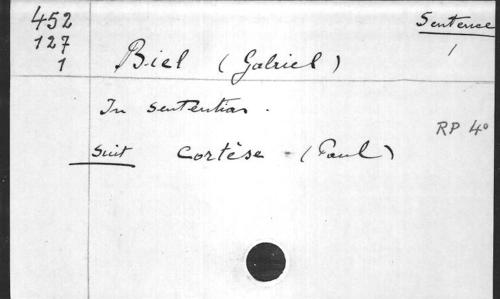 452
127
1
Sentence
1
Biel (Gabriel)
In sententias.
RP 4°
suit Cortèse - (Paul)